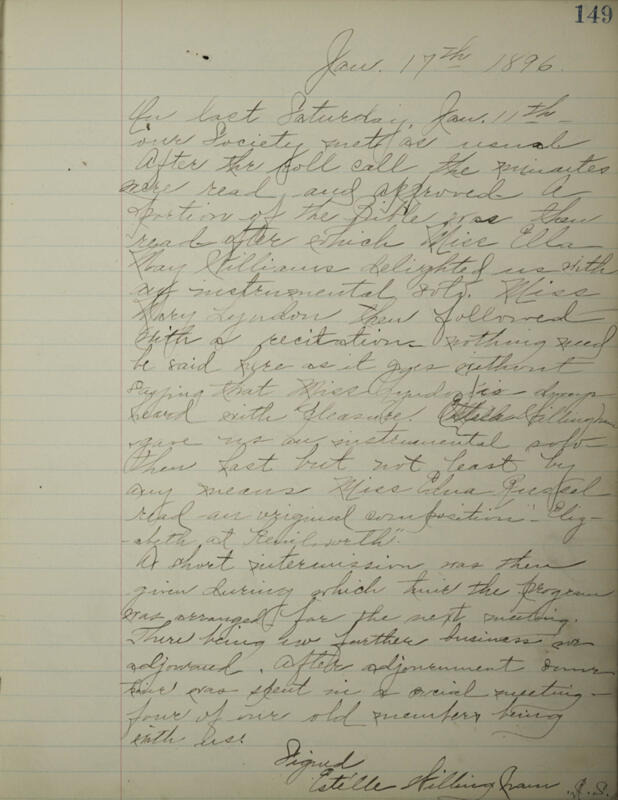 149
Jan. 17th 1896.
On last Saturday, Jan. 11th
our Society met as usual
After thr roll call the minutes
were read and approved. A
portion of the Bible was then
read after which Miss Ella
May Williams delighted us with
an instrumental solo. Miss
Mary Lyndon then followed
with a recitation nothing need
be said here as it goes without
saying that Miss Lyndon is always
heard with pleasure. Estelle Stillingham
gave us an instrumental solo
Then last but not least by
any means Miss Edna
read an original composition "Eliz-
abeth at Kenilworth".
A short intermission was then
given during which time the program
was arranged for the next meeting.
There being no further business we
adjourned. After adjournment some
time was spent in a social meeting -
four of our old members being
with us.
Signed
Estelle Stillingham